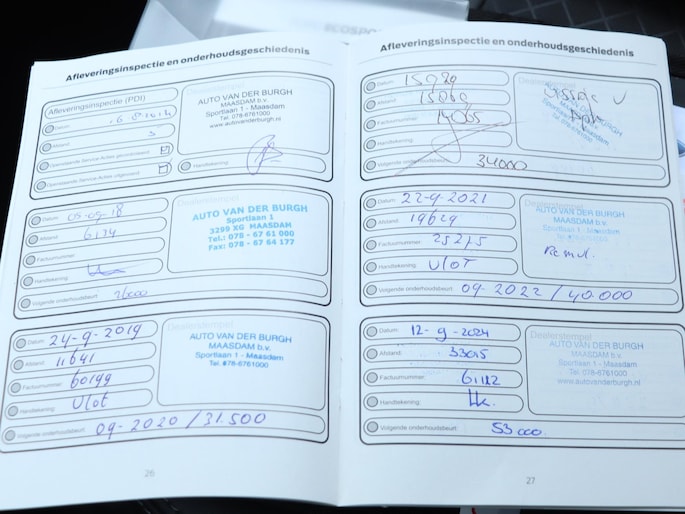 ECOSPO
Afleveringsinspectie en onderhoudsgeschiedenis
Afleveringsinspectie (PDI)
Datum:
Afstand:
Openstaande Service Acties gecontroleerd
Openstaande Service Acties uitgevoerd
Handtekening:
AUTO VAN DER BURGH
MAASDAM b.v.
Sportlaan 1 - Maasdam
Tel. 078-6761000
www.autovanderburgh.nl
Datum: 05-09-18
Afstand: 6134
Factuurnummer:
Handtekening:
Volgende onderhoudsbeurt: 26000
AUTO VAN DER BURGH
Sportlaan 1
3299 XG MAASDAM
Tel.: 078 - 67 61 000
Fax: 078 - 67 64 177
Datum: 24-9-2019
Afstand: 11641
Factuurnummer: 60199
Handtekening: Vlot
Volgende onderhoudsbeurt: 09-2020 / 31.500
Dealerstempel
AUTO VAN DER BURGH
MAASDAM b.v.
Sportlaan 1 - Maasdam
Tel. 078-6761000
26
Afleveringsinspectie en onderhoudsgeschiedenis
Datum: 15920
Afstand: 15060
Factuurnummer: 14065
Handtekening:
Volgende onderhoudsbeurt: 34000
Datum: 22-9-2021
Afstand: 19629
Factuurnummer: 25275
Handtekening: Vlot
Volgende onderhoudsbeurt: 09-2022 / 40.000
Dealerstempel
AUTO VAN DER BURGH
MAASDAM b.v.
Sportlaan 1 - Maasdam
Remvl.
Datum: 12-9-2024
Afstand: 33015
Factuurnummer: 61112
Handtekening:
Volgende onderhoudsbeurt: 53000
Dealerstempel
AUTO VAN DER BURGH
MAASDAM b.v.
Sportlaan 1 - Maasdam
Tel. 078-6761000
www.autovanderburgh.nl
27